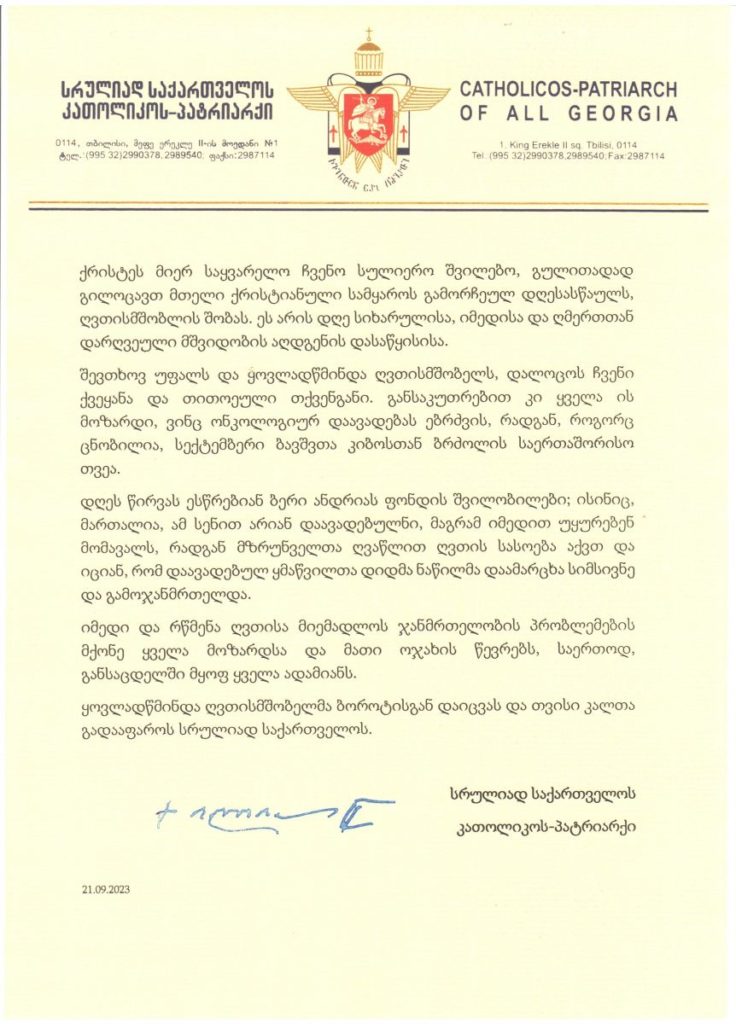 სრულიად საქართველოს
კათოლიკოს-პატრიარქი
0114, თბილისი, მეფე ერეკლე II-ის მოედანი №1
ტელ.:(995 32)2990378,2989540; ფაქსი:2987114
CATHOLICOS-PATRIARCH
OF ALL GEORGIA
1. King Erekle II sq. Tbilisi, 0114
Tel.:(995 32)2990378,2989540;Fax:2987114
ქრისტეს მიერ საყვარელო ჩვენო სულიერო შვილებო, გულითადად
გილოცავთ მთელი ქრისტიანული სამყაროს გამორჩეულ დღესასწაულს,
ღვთისმშობლის შობას. ეს არის დღე სიხარულისა, იმედისა და ღმერთთან
დარღვეული მშვიდობის აღდგენის დასაწყისისა.
შევთხოვ უფალს და ყოვლადწმინდა ღვთისმშობელს, დალოცოს ჩვენი
ქვეყანა და თითოეული თქვენგანი. განსაკუთრებით კი ყველა ის
მოზარდი, ვინც ონკოლოგიურ დაავადებას ებრძვის, რადგან, როგორც
ცნობილია, სექტემბერი ბავშვთა კიბოსთან ბრძოლის საერთაშორისო
თვეა.
დღეს წირვას ესწრებიან ბერი ანდრიას ფონდის შვილობილები; ისინიც,
მართალია, ამ სენით არიან დაავადებულნი, მაგრამ იმედით უყურებენ
მომავალს, რადგან მზრუნველთა ღვაწლით ღვთის სასოება აქვთ და
იციან, რომ დაავადებულ ყმაწვილთა დიდმა ნაწილმა დაამარცხა სიმსივნე
და გამოჯანმრთელდა.
იმედი და რწმენა ღვთისა მიემადლოს ჯანმრთელობის პრობლემების
მქონე ყველა მოზარდსა და მათი ოჯახის წევრებს, საერთოდ,
განსაცდელში მყოფ ყველა ადამიანს.
ყოვლადწმინდა ღვთისმშობელმა ბოროტისგან დაიცვას და თვისი კალთა
გადააფაროს სრულიად საქართველოს.
სრულიად საქართველოს
კათოლიკოს-პატრიარქი
21.09.2023